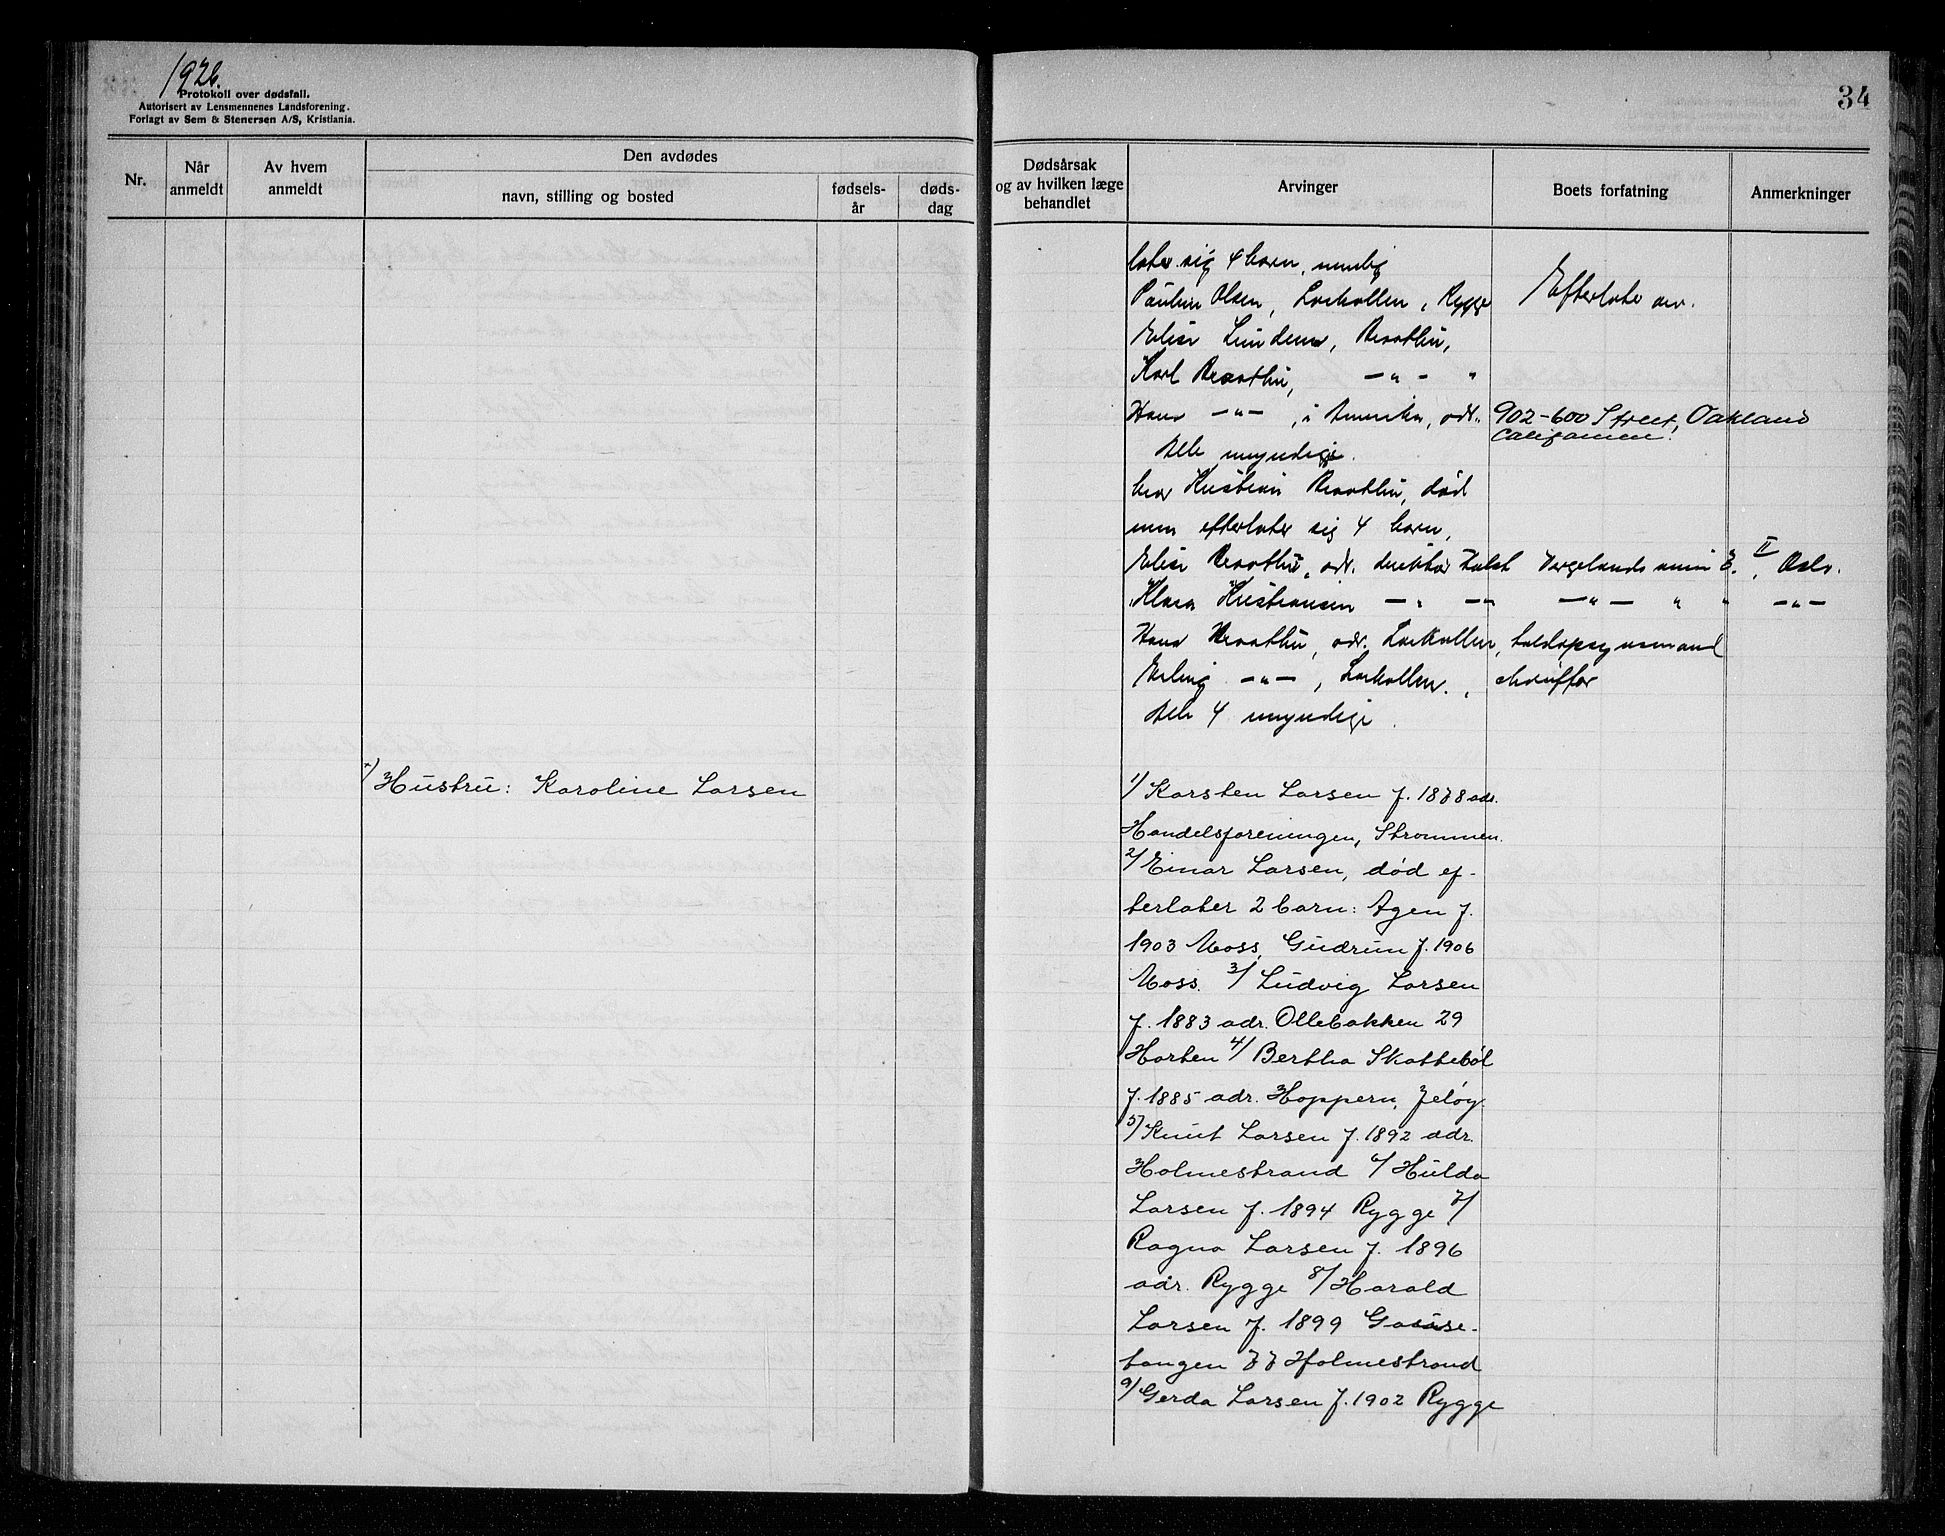 1926.
Protokoll over dødsfall.
Autorisert av Lensmennenes Landsforening.
Forlagt av Sem & Stenersen A/S, Kristiania.
34
Nr.
Når anmeldt
Av hvem anmeldt
Den avdødes
navn, stilling og bosted
fødsels-år
døds-dag
Dødsårsak og av hvilken læge behandlet
Arvinger
Boets forfatning
Anmerkninger
later sig 4 barn, nemlig
Pauline Olsen, Larkollen, Rygge Efterlater arv.
Elise Lunden, Braathu,
Karl Braathu, — " — "
Hans — " — , i Amerika, adr. 902-600 Street, Oakland
Californien.
Alle myndige.
bror Kristian Braathu, død
men efterlater sig 4 barn,
Elise Braathu, adr. direktør Holst Vergelandsveien 3. II, Oslo.
Klara Kristiansen — " — " — " — " " — " —
Hans Braathu, adr. Larkollen, toldopsynsmand
Erling — " — , Larkollen, chauffør
Alle 4 myndige.
+/ Hustru: Karoline Larsen
1/ Karsten Larsen f. 1878 adr.
Handelsforeningen, Strømmen.
2/ Einar Larsen, død ef-
terlater 2 barn: Agen f.
1903 Moss, Gudrun f. 1906
Moss. 3/ Ludvig Larsen
f. 1883 adr. Ollebakken 29
Horten 4/ Bertha Skattebøl
f. 1885 adr. Hoppern, Jeløy.
5/ Knut Larsen f. 1892 adr.
Holmestrand 6/ Hulda
Larsen f. 1894 Rygge 7/
Ragna Larsen f. 1896
adr. Rygge 8/ Harald
Larsen f. 1899 Gaase-
tangen 77 Holmestrand
9/ Gerda Larsen f. 1902 Rygge